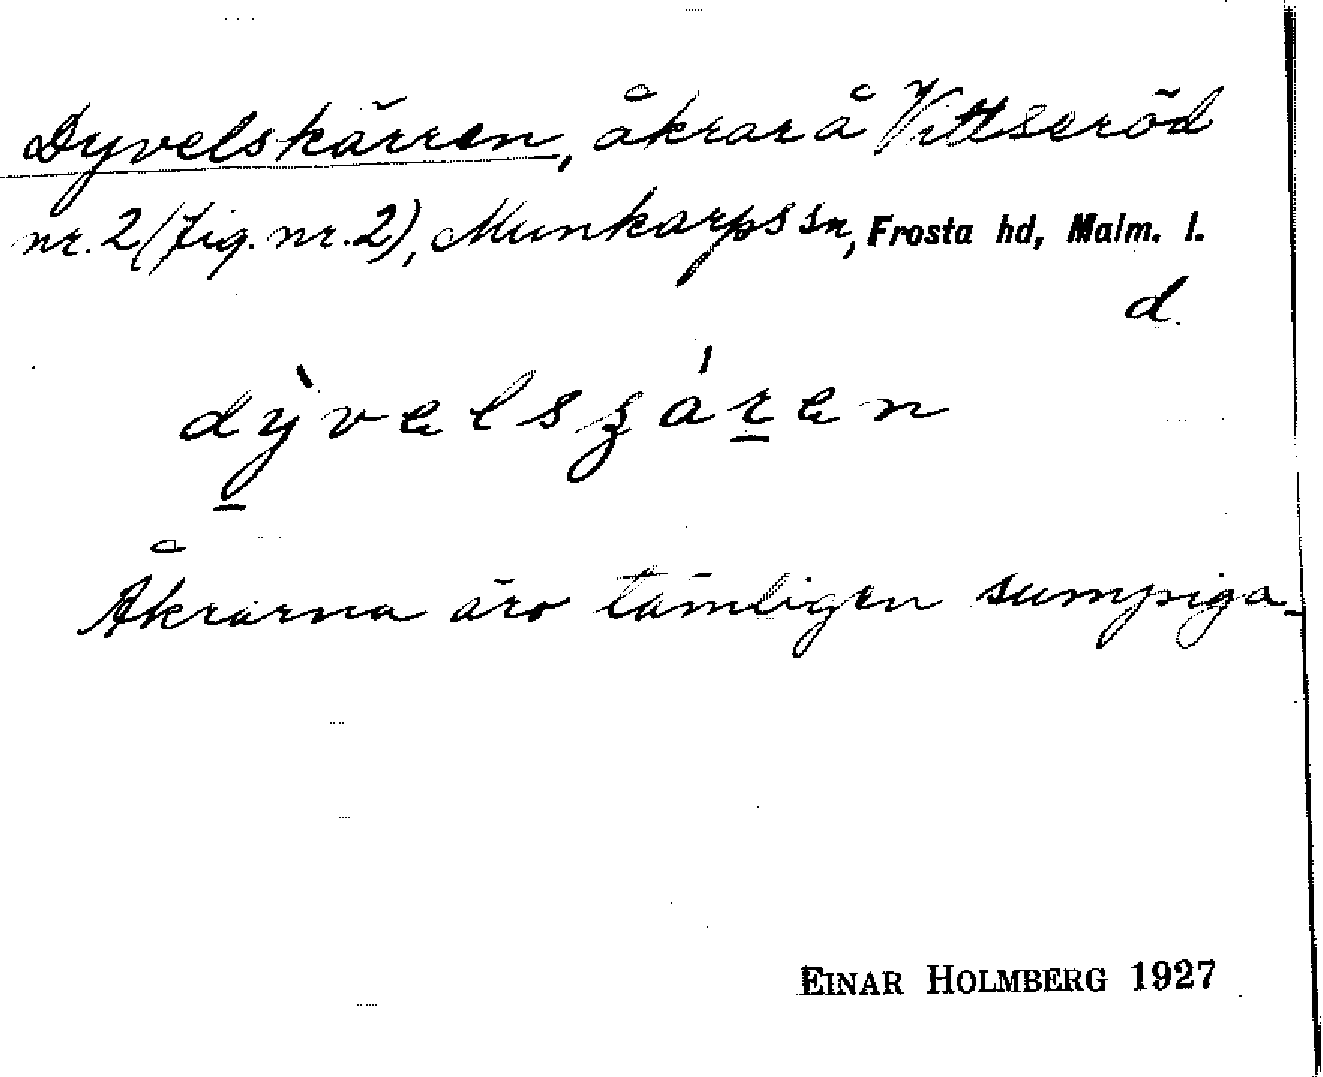 Dyvelskärren, åkrar å Vittseröd
nr. 2 (fig. nr. 2), Munkarps sn, Frosta hd, Malm. l.
d.
Åkrarna äro tämligen sumpiga.
EINAR HOLMBERG 1927